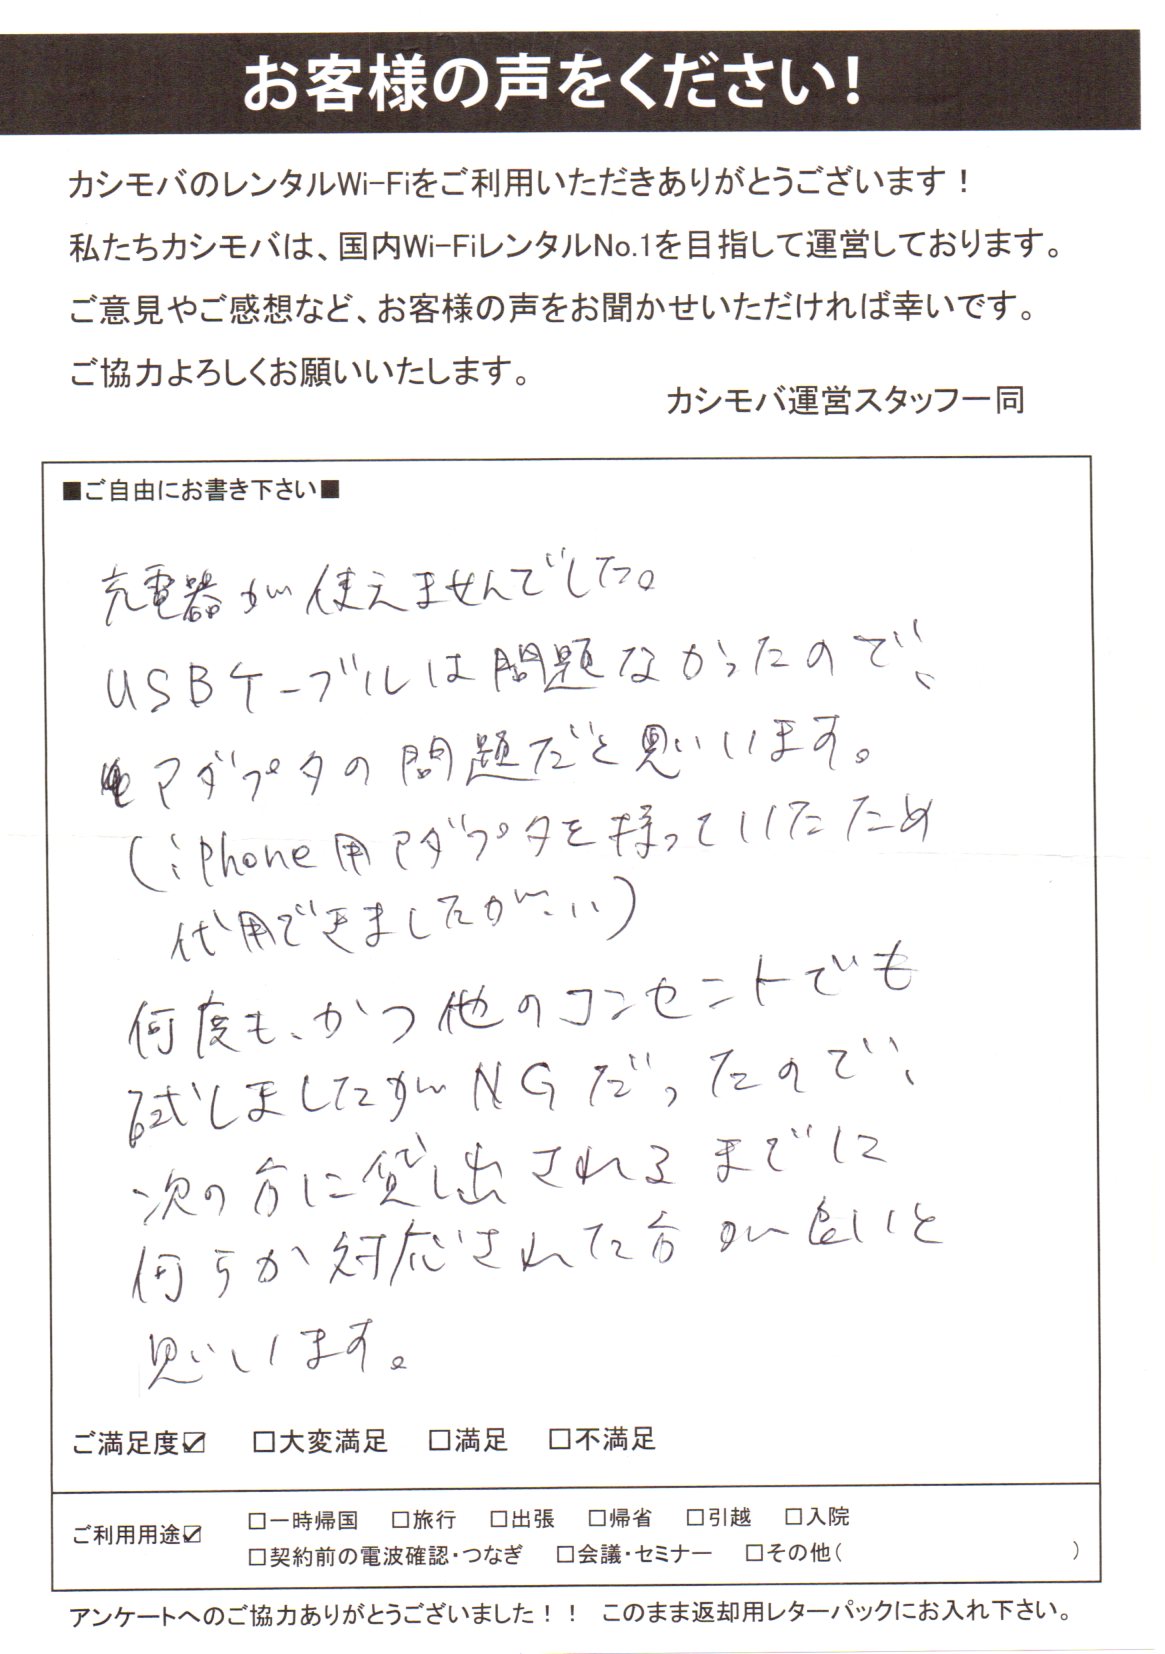 お客様の声をください!
カシモバのレンタルWi-Fiをご利用いただきありがとうございます!
私たちカシモバは、国内Wi-FiレンタルNo.1を目指して運営しております。
ご意見やご感想など、お客様の声をお聞かせいただければ幸いです。
ご協力よろしくお願いいたします。
カシモバ運営スタッフ一同
■ご自由にお書き下さい■
充電器が使えませんでした。
USBケーブルは問題なかったので、
アダプタの問題だと思います。
(iPhone用アダプタを持っていたため
代用できましたが…)
何度も、かつ他のコンセントでも
試しましたがNGだったので、
次の方に貸し出されるまでに
何らか対応された方が良いと
思います。
ご満足度☑ □大変満足 □満足 □不満足
ご利用用途☑ □一時帰国 □旅行 □出張 □帰省 □引越 □入院
□契約前の電波確認・つなぎ □会議・セミナー □その他( )
アンケートへのご協力ありがとうございました!! このまま返却用レターパックにお入れ下さい。